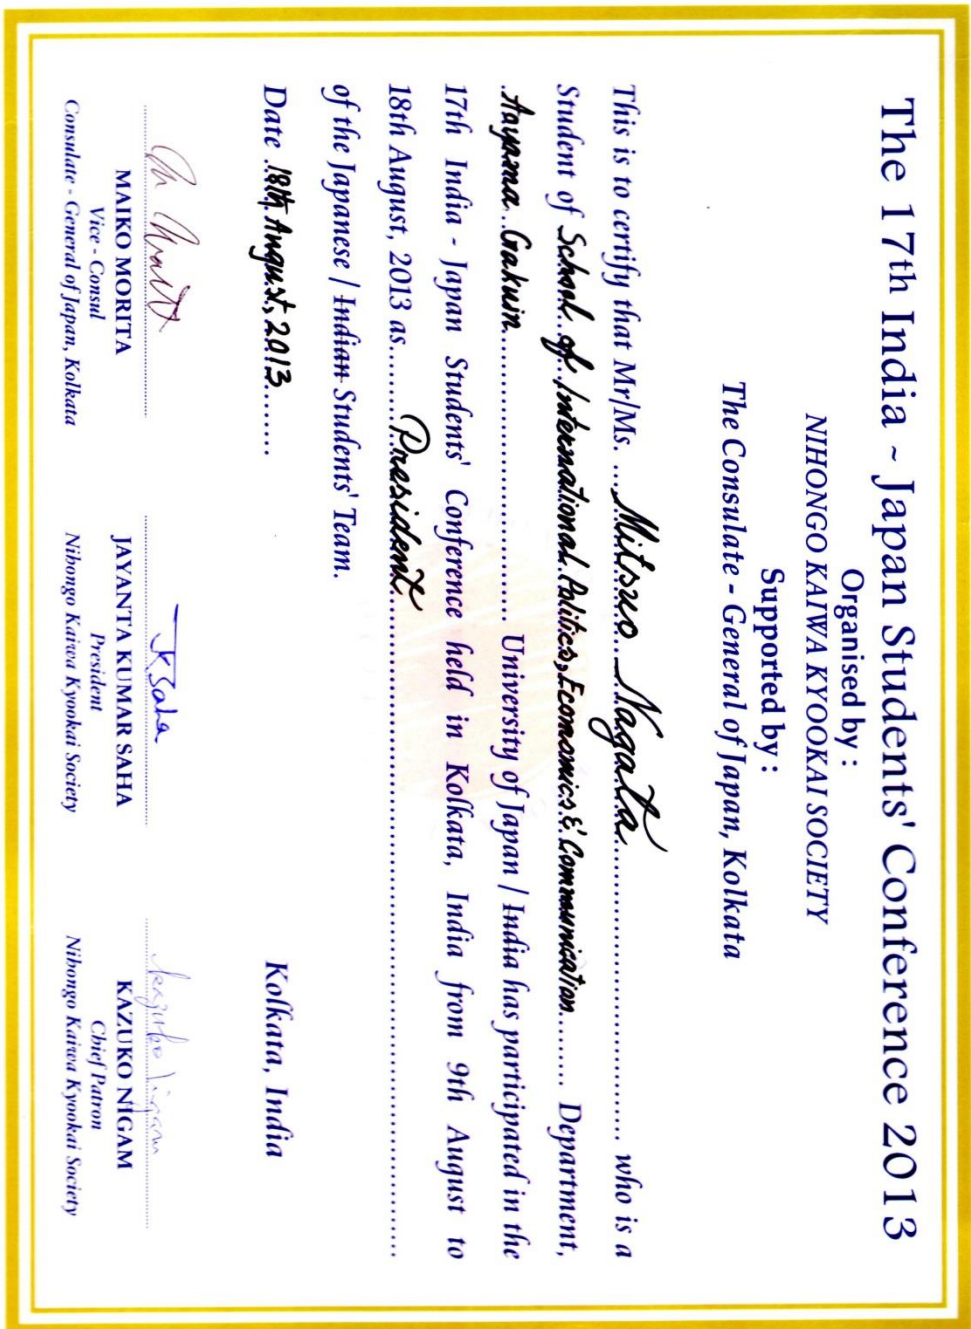 The 17th India ~ Japan Students' Conference 2013
Organised by :
NIHONGO KAIWA KYOOKAI SOCIETY
Supported by :
The Consulate - General of Japan, Kolkata
This is to certify that Mr/Ms. ....Mitsuo Nagata.... who is a
Student of School of International Politics, Economics & Communication........ Department,
Aoyama Gakuin.... University of Japan / India has participated in the
17th India - Japan Students' Conference held in Kolkata, India from 9th August to
18th August, 2013 as........President....
of the Japanese / Indian Students' Team.
Date .18th, August, 2013........ Kolkata, India
MAIKO MORITA
Vice - Consul
Consulate - General of Japan, Kolkata
JKSaha
JAYANTA KUMAR SAHA
President
Nihongo Kaiwa Kyookai Society
Kazuko Nigam
KAZUKO NIGAM
Chief Patron
Nihongo Kaiwa Kyookai Society